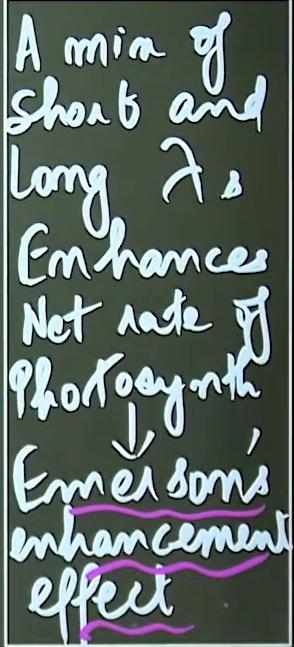 A mix of
Short and
Long λs
Enhances
Net rate of
Photosynth
↓
Emerson's
enhancement
effect